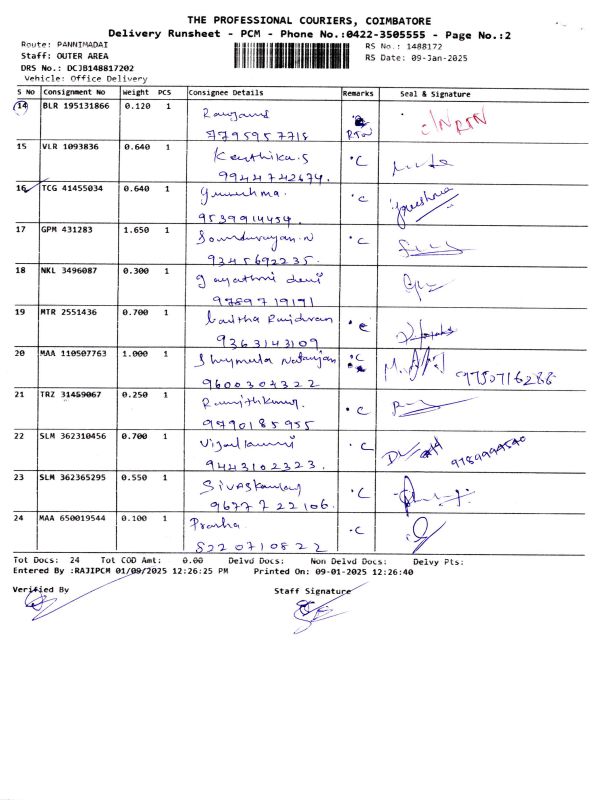 THE PROFESSIONAL COURIERS, COIMBATORE
Delivery Runsheet - PCM - Phone No.:0422-3505555 - Page No.:2
Route: PANNIMADAI
RS No.: 1488172
Staff: OUTER AREA
RS Date: 09-Jan-2025
DRS No.: DCJB148817202
Vehicle: Office Delivery
S No Consignment No Weight PCS Consignee Details Remarks Seal & Signature
14 BLR 195131866 0.120 1
7795957718 RTN RTN
15 VLR 1093836 0.640 1 Karthika.S C
9944742674.
16 TCG 41455034 0.640 1 C
9539914454.
17 GPM 431283 1.650 1 C
9345692235.
18 NKL 3496087 0.300 1 gayathri devi
9789719171
19 MTR 2551436 0.700 1 C
9363143109
20 MAA 110507763 1.000 1 C
9600304322 9750716288
21 TRZ 31459067 0.250 1 Ranjithkumar. C
9790185955
22 SLM 362310456 0.700 1 C
9443102323.
23 SLM 362365295 0.550 1 C
9677722106.
24 MAA 650019544 0.100 1 C
8220710822
Tot Docs: 24 Tot COD Amt: 0.00 Delvd Docs: Non Delvd Docs: Delvy Pts:
Entered By :RAJIPCM 01/09/2025 12:26:25 PM Printed On: 09-01-2025 12:26:40
Verified By Staff Signature